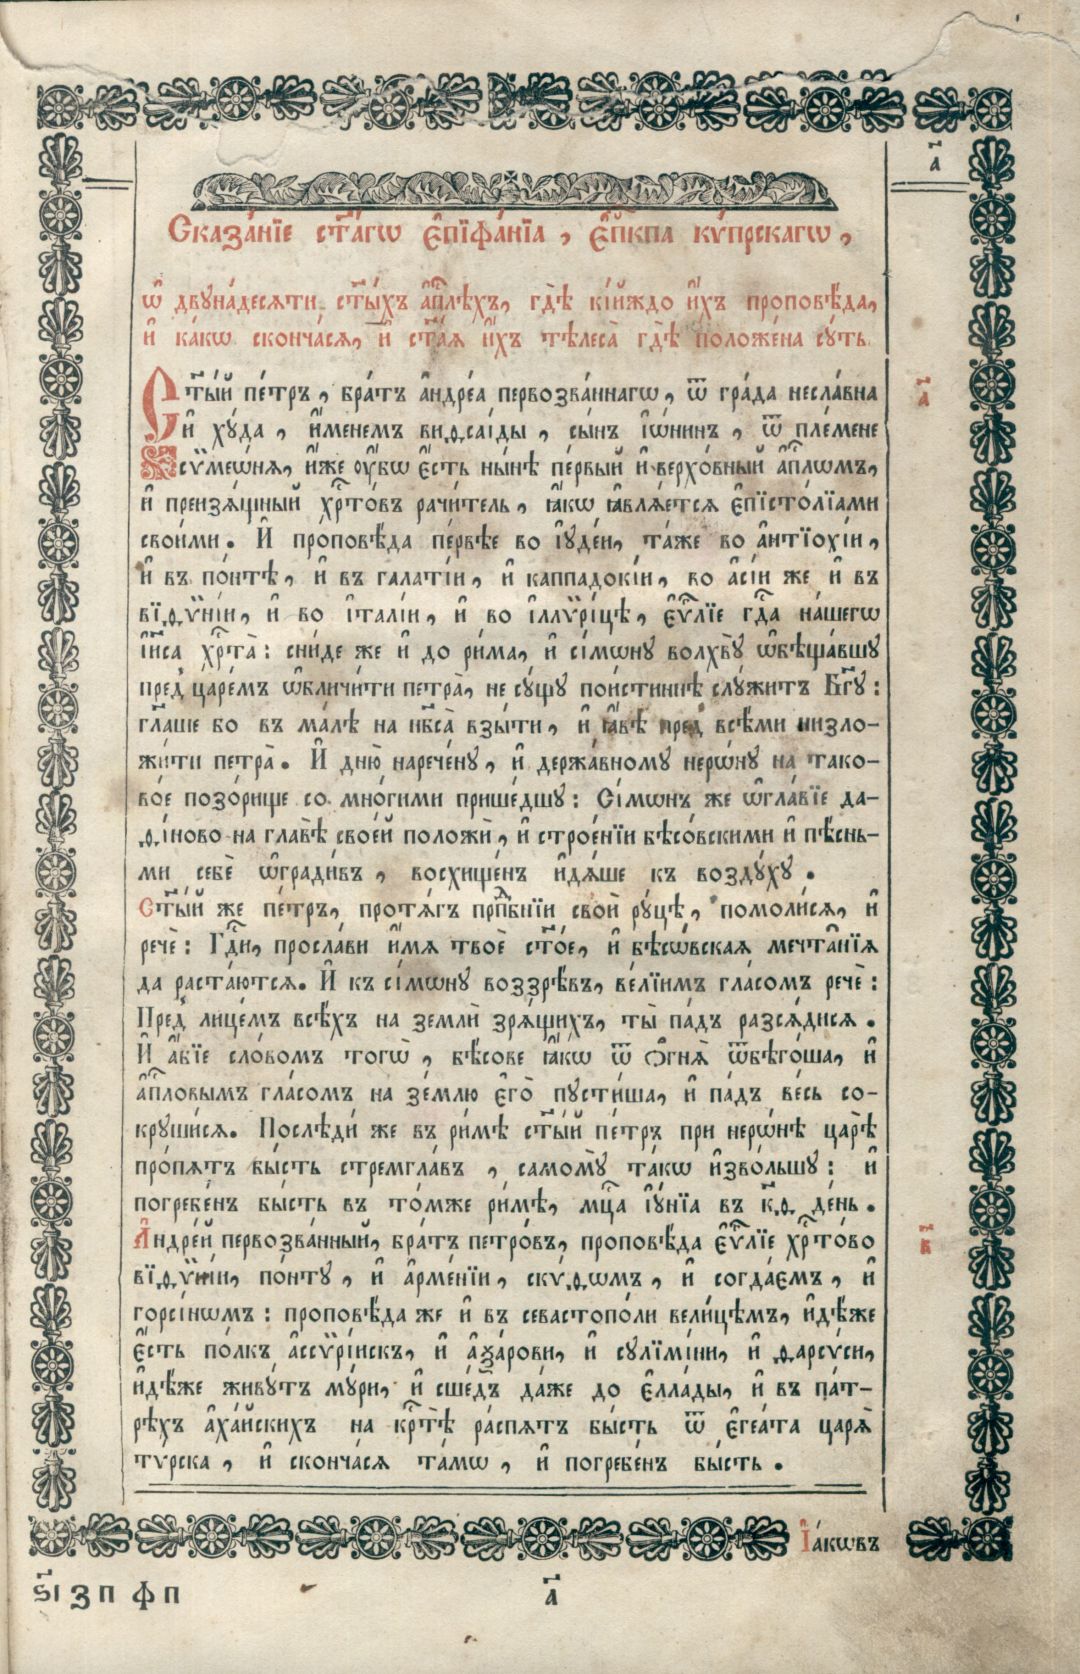 а҃
Сказа́нїе ст҃а́гѡ є҆пїфа́нїа, є҆п҃кпа кѵ́прскагѡ,
ѡ҆ двꙋна́десѧти ст҃ы́хъ а҆п҃лѣхъ, гдѣ̀ кі́йждо и҆́хъ проповѣ́да,
и҆ ка́кѡ сконча́сѧ, и҆ ст҃а́ѧ и҆́хъ тѣлеса̀ гдѣ̀ положє́на сꙋ́ть.
Ст҃ы́й пе́тръ, бра́тъ а҆ндре́а первозва́ннагѡ, ѿ гра́да несла́вна
и҆ хꙋ́да, и҆́менемъ виѳсаі́ды, сы́нъ і҆ѡ́нинъ, ѿ пле́мене
сѷмеѡ́нѧ, и҆́же ᲂу҆́бѡ є҆́сть ны́нѣ пе́рвый и҆ верхо́вный а҆п҃лѡмъ,
и҆ преизѧ́щный хр҃то́въ рачи́тель, ꙗ҆́кѡ ꙗ҆влѧ́етсѧ є҆пїсто́лїами
свои́ми. И҆ проповѣ́да пе́рвѣе во і҆ꙋде́и, та́же во а҆нтїохі́и,
и҆ въ по́нтѣ, и҆ въ гала́тїи, и҆ каппадокі́и, во а҆сі́и же и҆ въ
вїѳѷні́и, и҆ во і҆талі́и, и҆ во і҆ллѷрі́цѣ, є҆ѵ҃лїе гд҃а на́шегѡ
і҆и҃са хр҃та̀: сни́де же и҆ до ри́ма, и҆ сі́мѡнꙋ волхвꙋ̀ ѡ҆бѣща́вшꙋ
пред̾ царе́мъ ѡ҆бличи́ти петра̀, не сꙋ́щꙋ пои́стиннѣ слꙋ́житъ Бг҃ꙋ:
гл҃аше бо въ ма́лѣ на нб҃са̀ взы́ти, и҆ ꙗ҆́вѣ пред̾ всѣ́ми низло-
жи́ти петра̀. И҆ дню̀ нарече́нꙋ, и҆ держа́вномꙋ нерѡ́нꙋ на тако-
во́е позо́рище со мно́гими прише́дшꙋ: Сі́мѡнъ же ѡ҆гла́вїе да-
ѳі́ново на главѣ̀ свое́й положѝ, и҆ строе́нїи бѣсо́вскими и҆ пѣ́снь-
ми себѐ ѡ҆гради́въ, восхище́нъ и҆дѧ́ше къ воздꙋ́хꙋ.
Ст҃ы́й же пе́тръ, протѧ́гъ прпⷣбнїи свои̑ рꙋ́цѣ, помоли́сѧ, и҆
речѐ: Гд҃и, просла́ви и҆́мѧ твоѐ ст҃о́е, и҆ бѣсѡ́вская мечта̑нїѧ
да раста́ютсѧ. И҆ къ сі́мѡнꙋ воззрѣ́въ, ве́лїимъ гла́сомъ речѐ:
Пред̾ лице́мъ всѣ́хъ на землѝ зрѧ́щихъ, ты̀ па́дъ разсѧ́дисѧ.
И҆ а҆́бїе сло́вомъ тогѡ̀, бѣ́сове ꙗ҆́кѡ ѿ ѻ҆гнѧ̀ ѿбѣго́ша, и҆
а҆п҃ловымъ гла́сомъ на зе́млю є҆го̀ пꙋсти́ша, и҆ па́дъ ве́сь со-
крꙋши́сѧ. Послѣди́ же въ ри́мѣ ст҃ы́й пе́тръ при нерѡ́нѣ царѣ̀
про́пѧтъ бы́сть стремгла́въ, самомꙋ̀ та́кѡ и҆зво́льшꙋ: и҆
погребе́нъ бы́сть въ то́мже ри́мѣ, мц҃а і҆ꙋ́нїа въ к҃ѳ де́нь.
А҆ндре́й первозва́нный, бра́тъ петро́въ, проповѣ́да є҆ѵ҃лїе хр҃то́во
вїѳѷні́и, по́нтꙋ, и҆ а҆рме́нїи, скѵ́ѳѡмъ, и҆ согда́ємъ, и҆
горсі́нѡмъ: проповѣ́да же и҆ въ севасто́поли вели́цѣмъ, и҆дѣ́же
є҆́сть по́лкъ а҆ссѷрі́искъ, и҆ а҆за́рови, и҆ сꙋлїмі́ни, и҆ ѳарсꙋси,
и҆дѣ́же живꙋ́тъ мѵ́ри, и҆ сше́дъ да́же до є҆лла́ды, и҆ въ па́т-
рѣхъ а҆ха́йскихъ на кр҃тѣ̀ распѧ́тъ бы́сть ѿ є҆геа́та царѧ̀
тѵ́рска, и҆ сконча́сѧ та́мѡ, и҆ погребе́нъ бы́сть.
а҃
в҃
І҆а́кѡвъ
ѕ҃і з п ф п
а҃